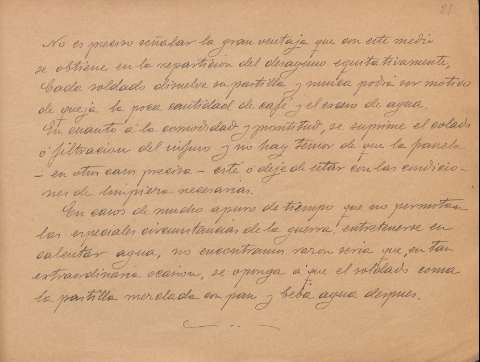 No es preciso señalar la gran ventaja que con este medio
se obtiene en la reparticion del desayuno equitativamente.
Cada soldado disuelve su pastilla y nunca podrá ser motivo
de queja la poca cantidad de café y el exceso de agua.
En cuanto á la comodidad y prontitud, se suprime el colado
ó filtracion del mismo y no hay temor de que la
- en otro caso precisa - esté ó deje de estar con las condicio-
nes de limpieza necesarias.
En casos de mucho apuro de tiempo que no permitan
las especiales circunstancias de la guerra, entretenerse en
calentar agua, no encontramos razon seria que, en tan
extraordinaria ocasion, se oponga á que el soldado coma
la pastilla mezclada con pan y beba agua despues.